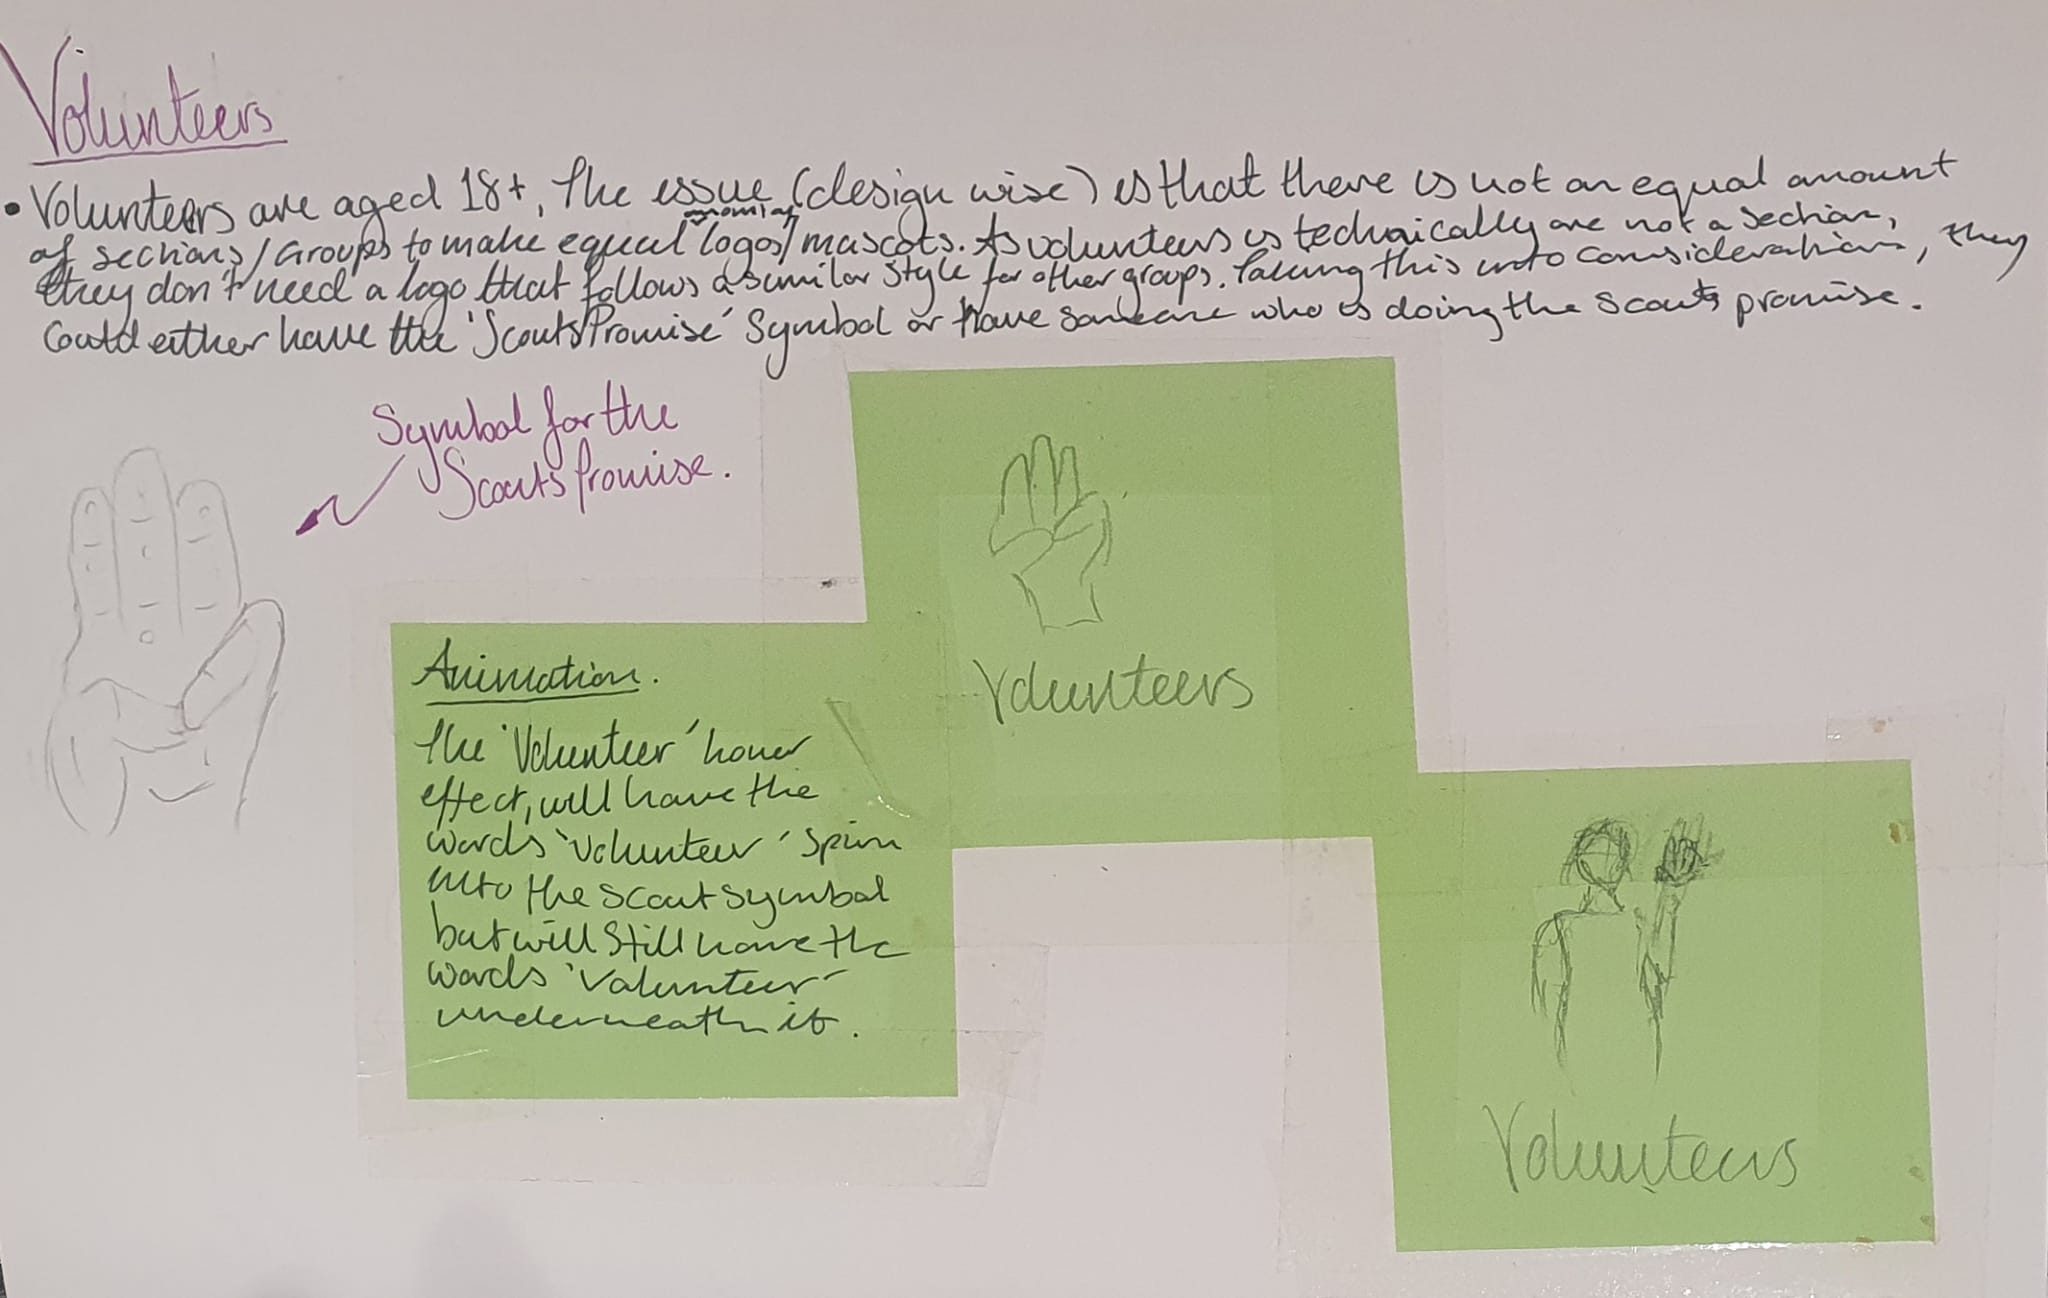 Volunteers
• Volunteers are aged 18+, The issue (design wise) is that there is not an equal amount
of sections/Groups to make equal animal logos/mascots. As volunteers is technically are not a section,
they don't need a logo that follows a similar style for other groups. Taking this into consideration, they
could either have the 'Scouts Promise' Symbol or have someone who is doing the scouts promise.
Symbol for the
Scouts Promise.
Volunteers
Animation.
The 'Volunteer' hover
effect, will have the
words 'volunteer' spin
into the scout symbol
but will still have the
words 'volunteer'
underneath it.
Volunteers